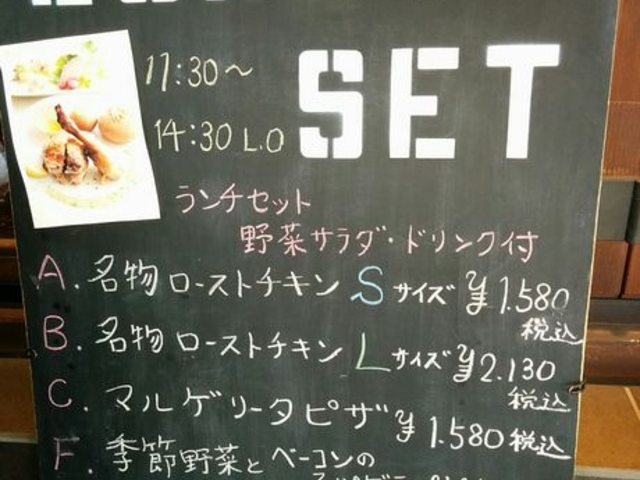 SET
11:30〜
14:30 L.O
ランチセット
野菜サラダ・ドリンク付
A. 名物ローストチキン Sサイズ ¥1.580
税込
B. 名物ローストチキン Lサイズ ¥2.130
税込
C. マルゲリータピザ ¥1.580 税込
F. 季節野菜とベーコンの